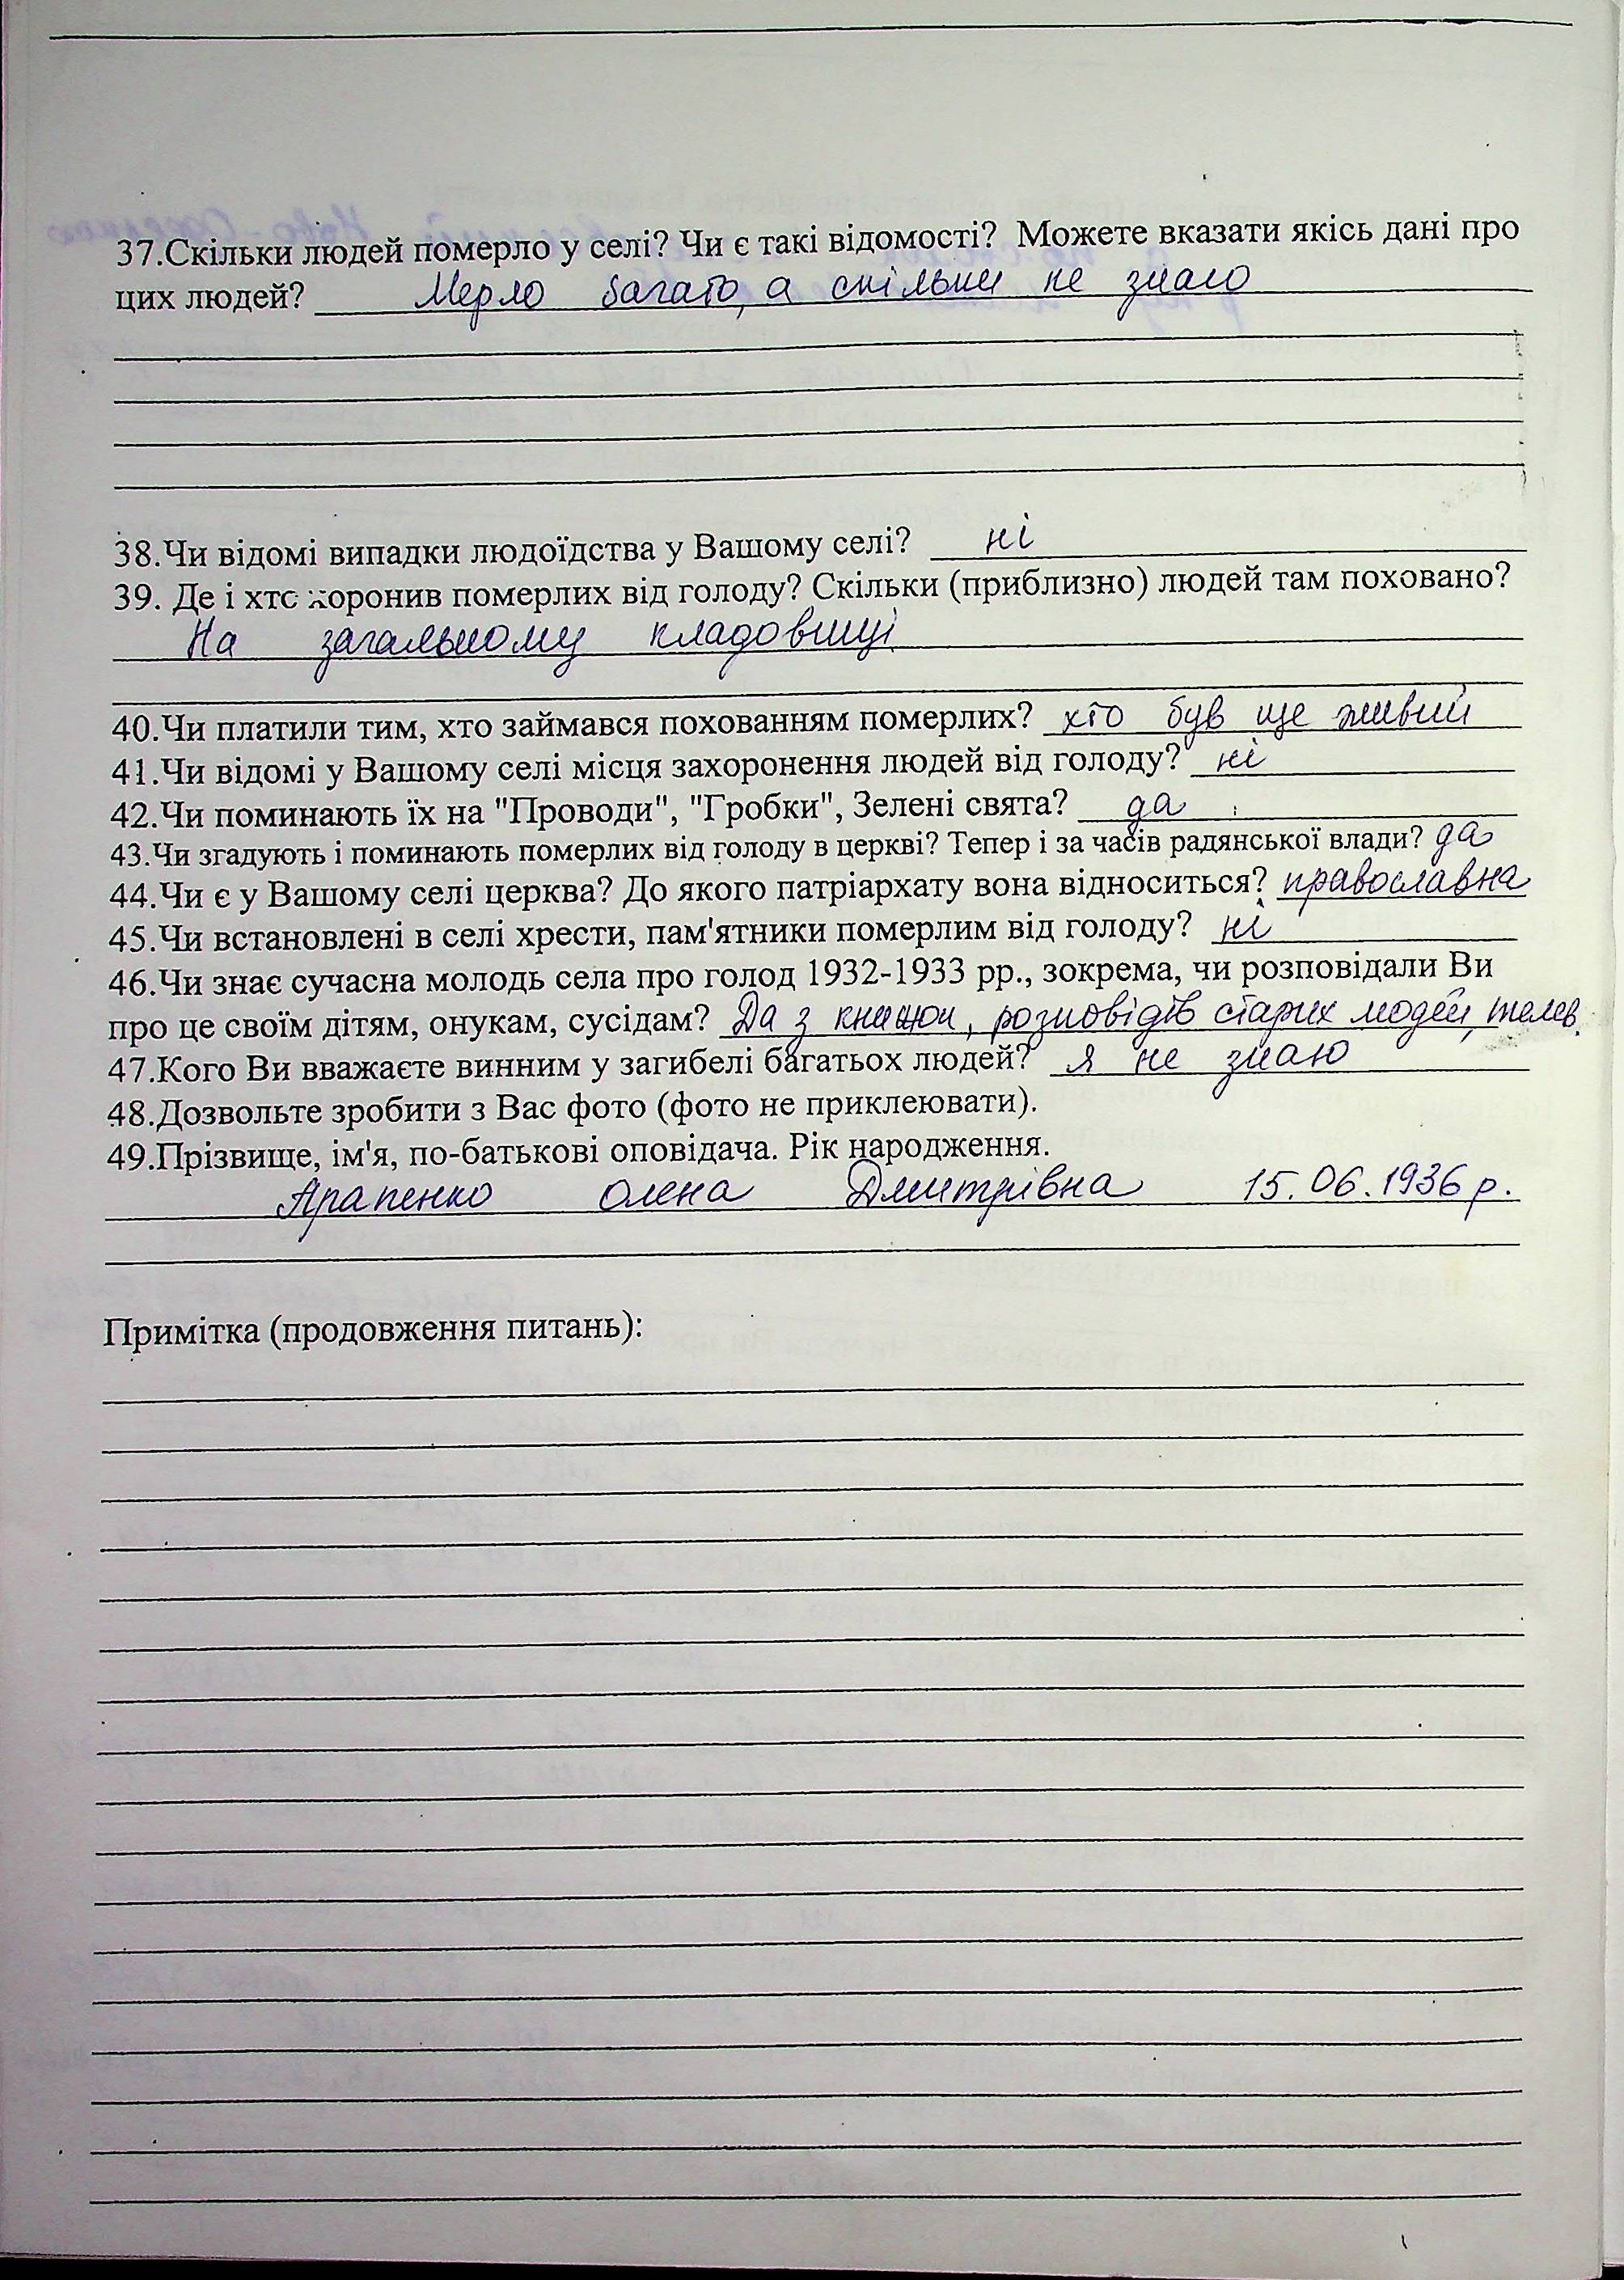 37.Скільки людей померло у селі? Чи є такі відомості? Можете вказати якісь дані про
цих людей? Мерло багато, а скільки не знаю
38.Чи відомі випадки людоїдства у Вашому селі? ні
39. Де і хто хоронив померлих від голоду? Скільки (приблизно) людей там поховано?
На загальному кладовищі
40.Чи платили тим, хто займався похованням померлих? хто був ще живий
41.Чи відомі у Вашому селі місця захоронення людей від голоду? ні
42.Чи поминають їх на "Проводи", "Гробки", Зелені свята? да
43.Чи згадують і поминають померлих від голоду в церкві? Тепер і за часів радянської влади? да
44.Чи є у Вашому селі церква? До якого патріархату вона відноситься? православна
45.Чи встановлені в селі хрести, пам'ятники померлим від голоду? ні
46.Чи знає сучасна молодь села про голод 1932-1933 рр., зокрема, чи розповідали Ви
про це своїм дітям, онукам, сусідам? Да з книжок, розповідів старих людей, телев.
47.Кого Ви вважаєте винним у загибелі багатьох людей? я не знаю
48.Дозвольте зробити з Вас фото (фото не приклеювати).
49.Прізвище, ім'я, по-батькові оповідача. Рік народження.
Арапенко Олена Дмитрівна 15.06.1936 р.
Примітка (продовження питань):